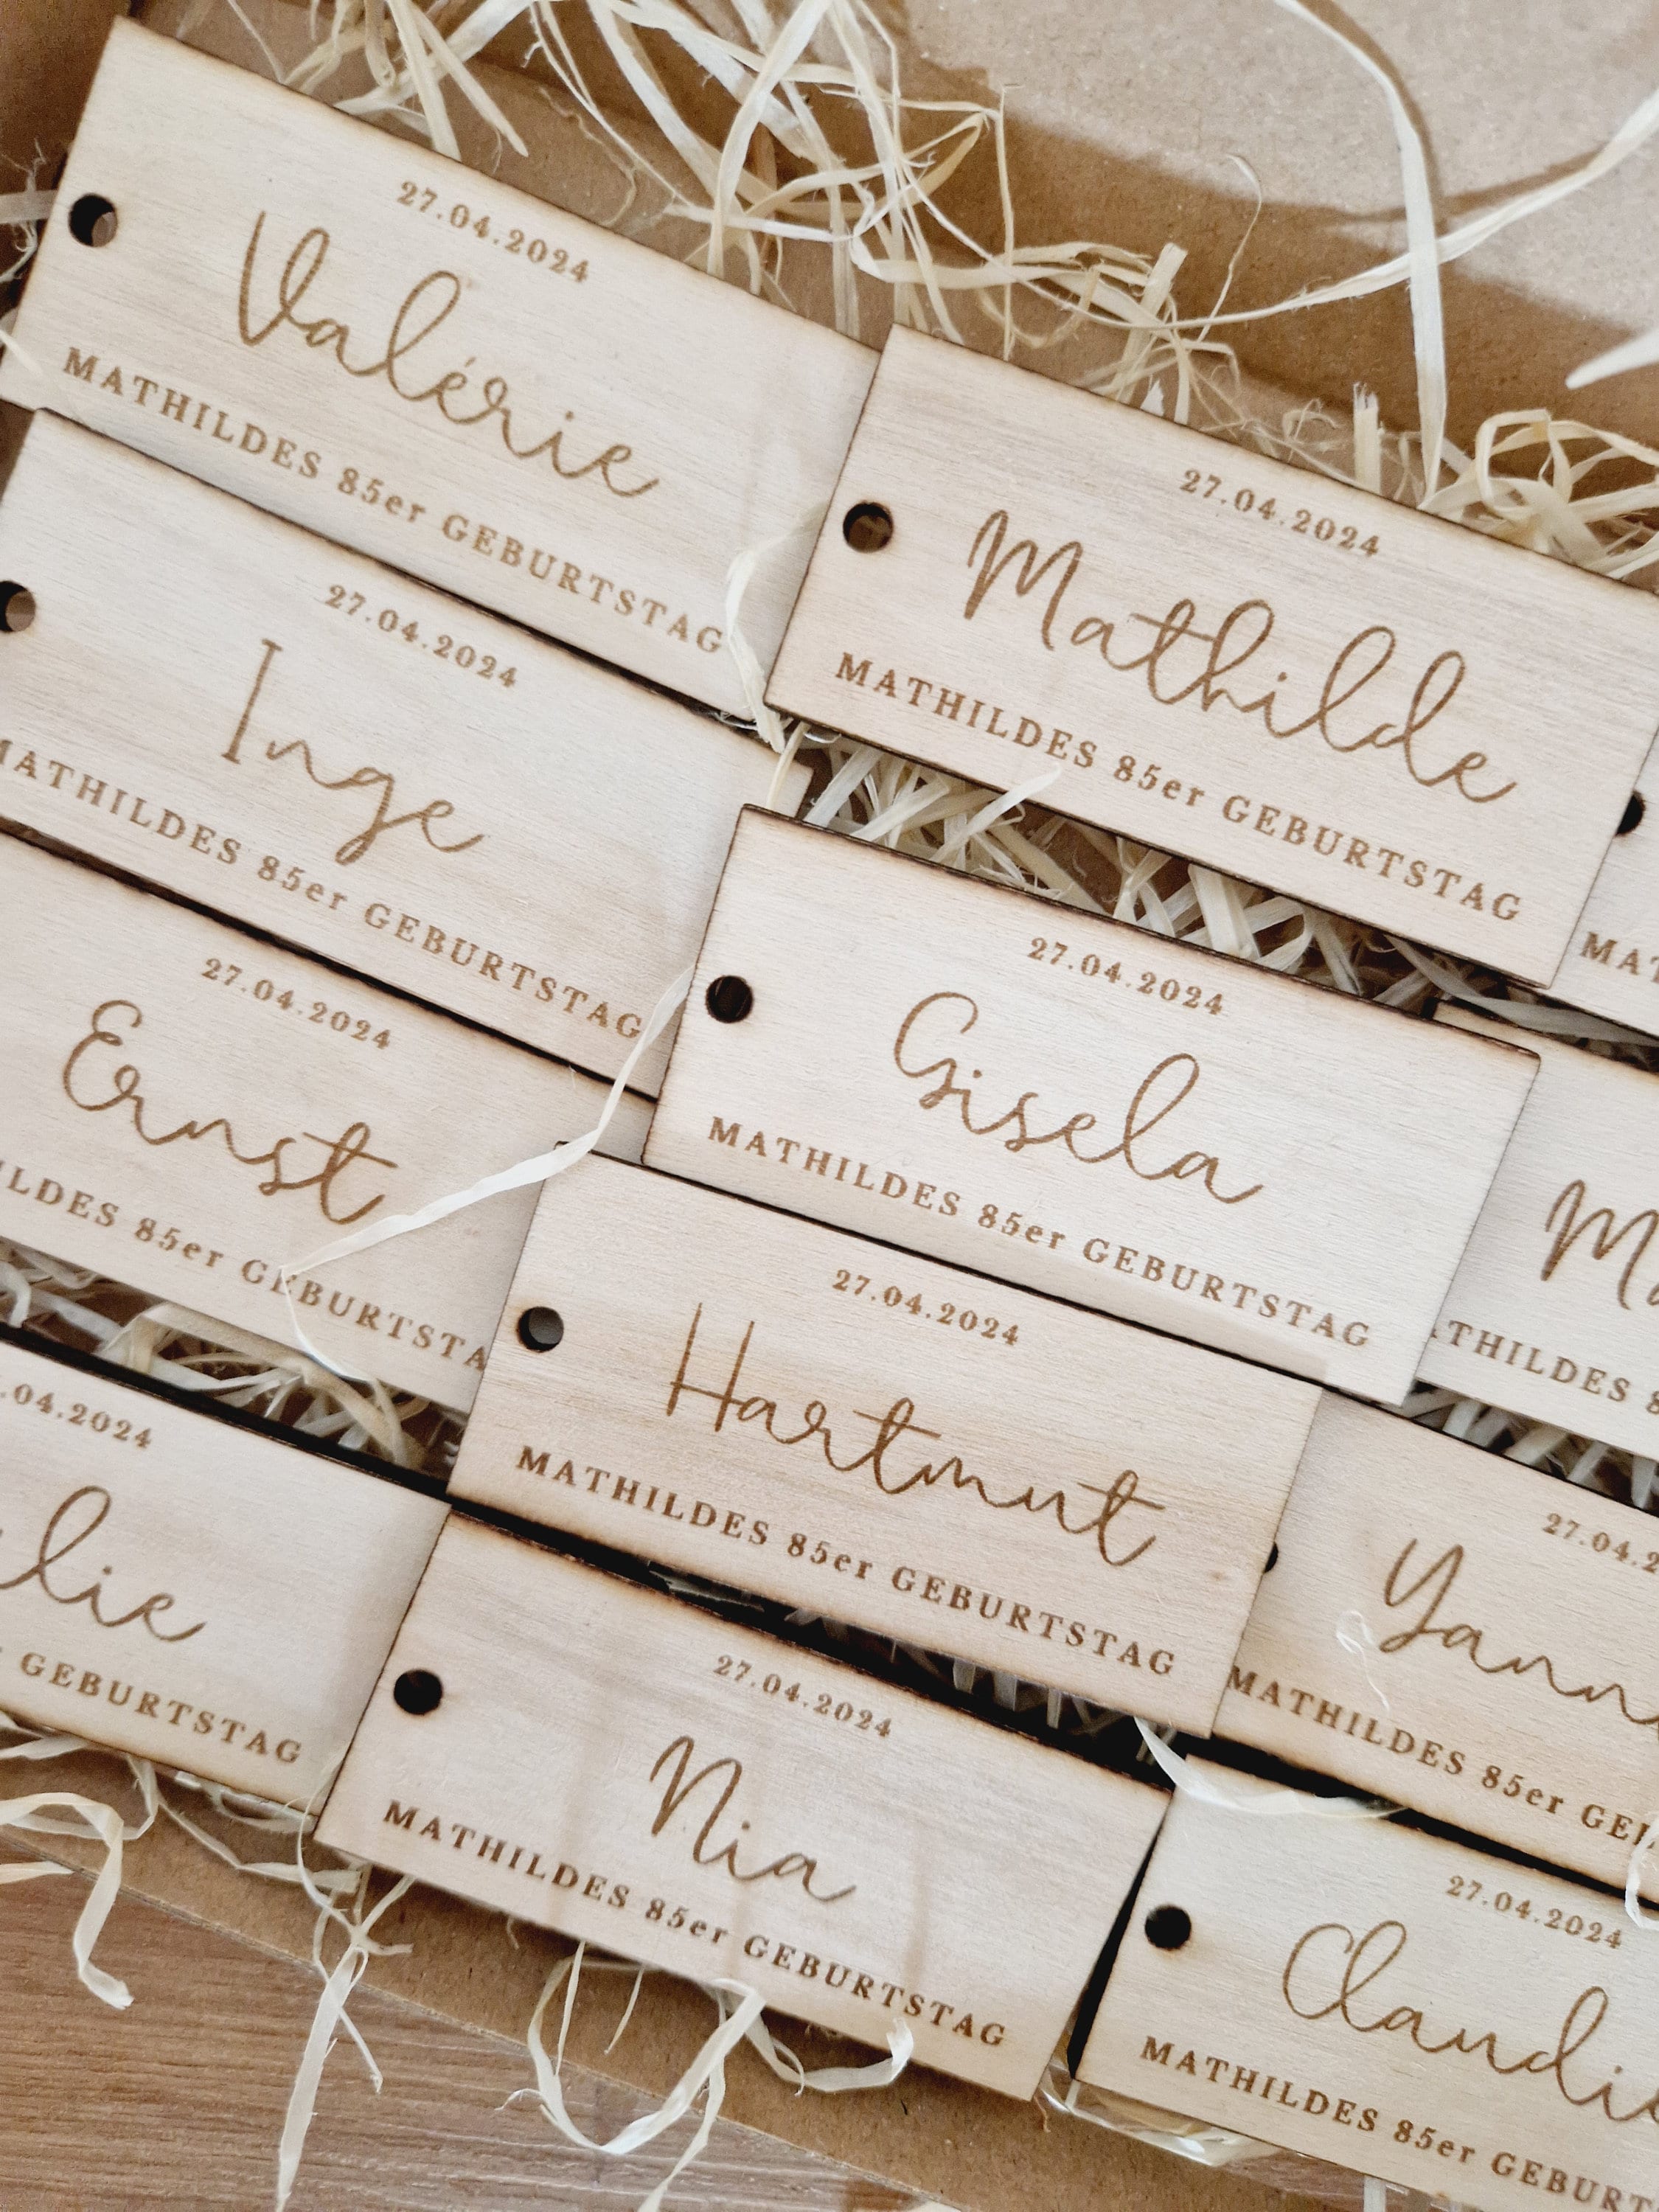 27.04.2024
Valérie
MATHILDES 85er GEBURTSTAG
27.04.2024
Mathilde
MATHILDES 85er GEBURTSTAG
27.04.2024
Inge
MATHILDES 85er GEBURTSTAG
27.04.2024
Gisela
MATHILDES 85er GEBURTSTAG
27.04.2024
Ernst
85er GEBURTSTA
27.04.2024
Hartmut
MATHILDES 85er GEBURTSTAG
MATHILDES
.04.2024
lie
GEBURTSTAG
27.04.2
Yann
MATHILDES 85er GEB
27.04.2024
Nia
MATHILDES 85er GEBURTSTAG
27.04.2024
Claudi
MATHILDES 85er GEBURT